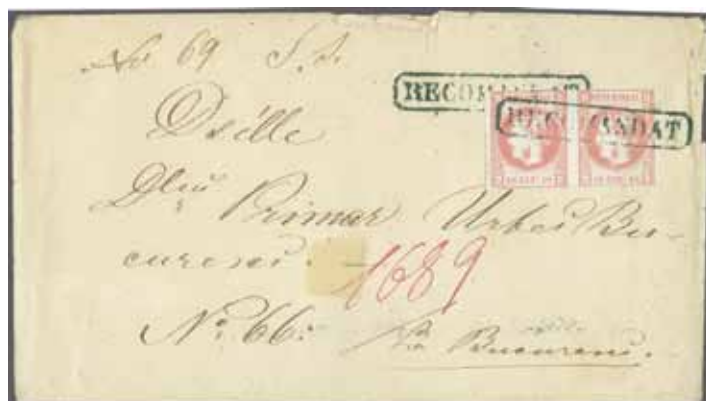 No 69 S. S.
RECOMANDAT
RECOMANDAT
Dsille
Dlui Primar Urbei Bu-
curesci.
1689
No: 66:
La Bucuresci.